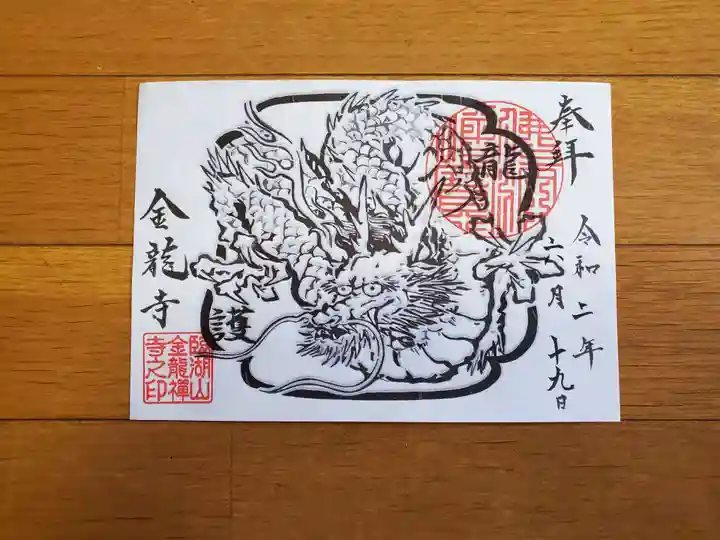 奉拜
令和二年
六月
十九日
龍
護
金龍寺
臨湖山
金龍禪
寺之印